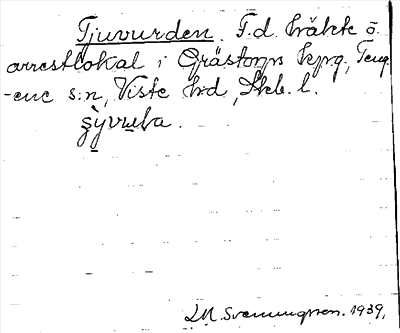 Tjuvurden. F.d. häkte o.
arrestlokal i Grästorps kpg, Teng
-ene s:n, Viste hd, Skb. l.
L.M. Svenungsson. 1939.